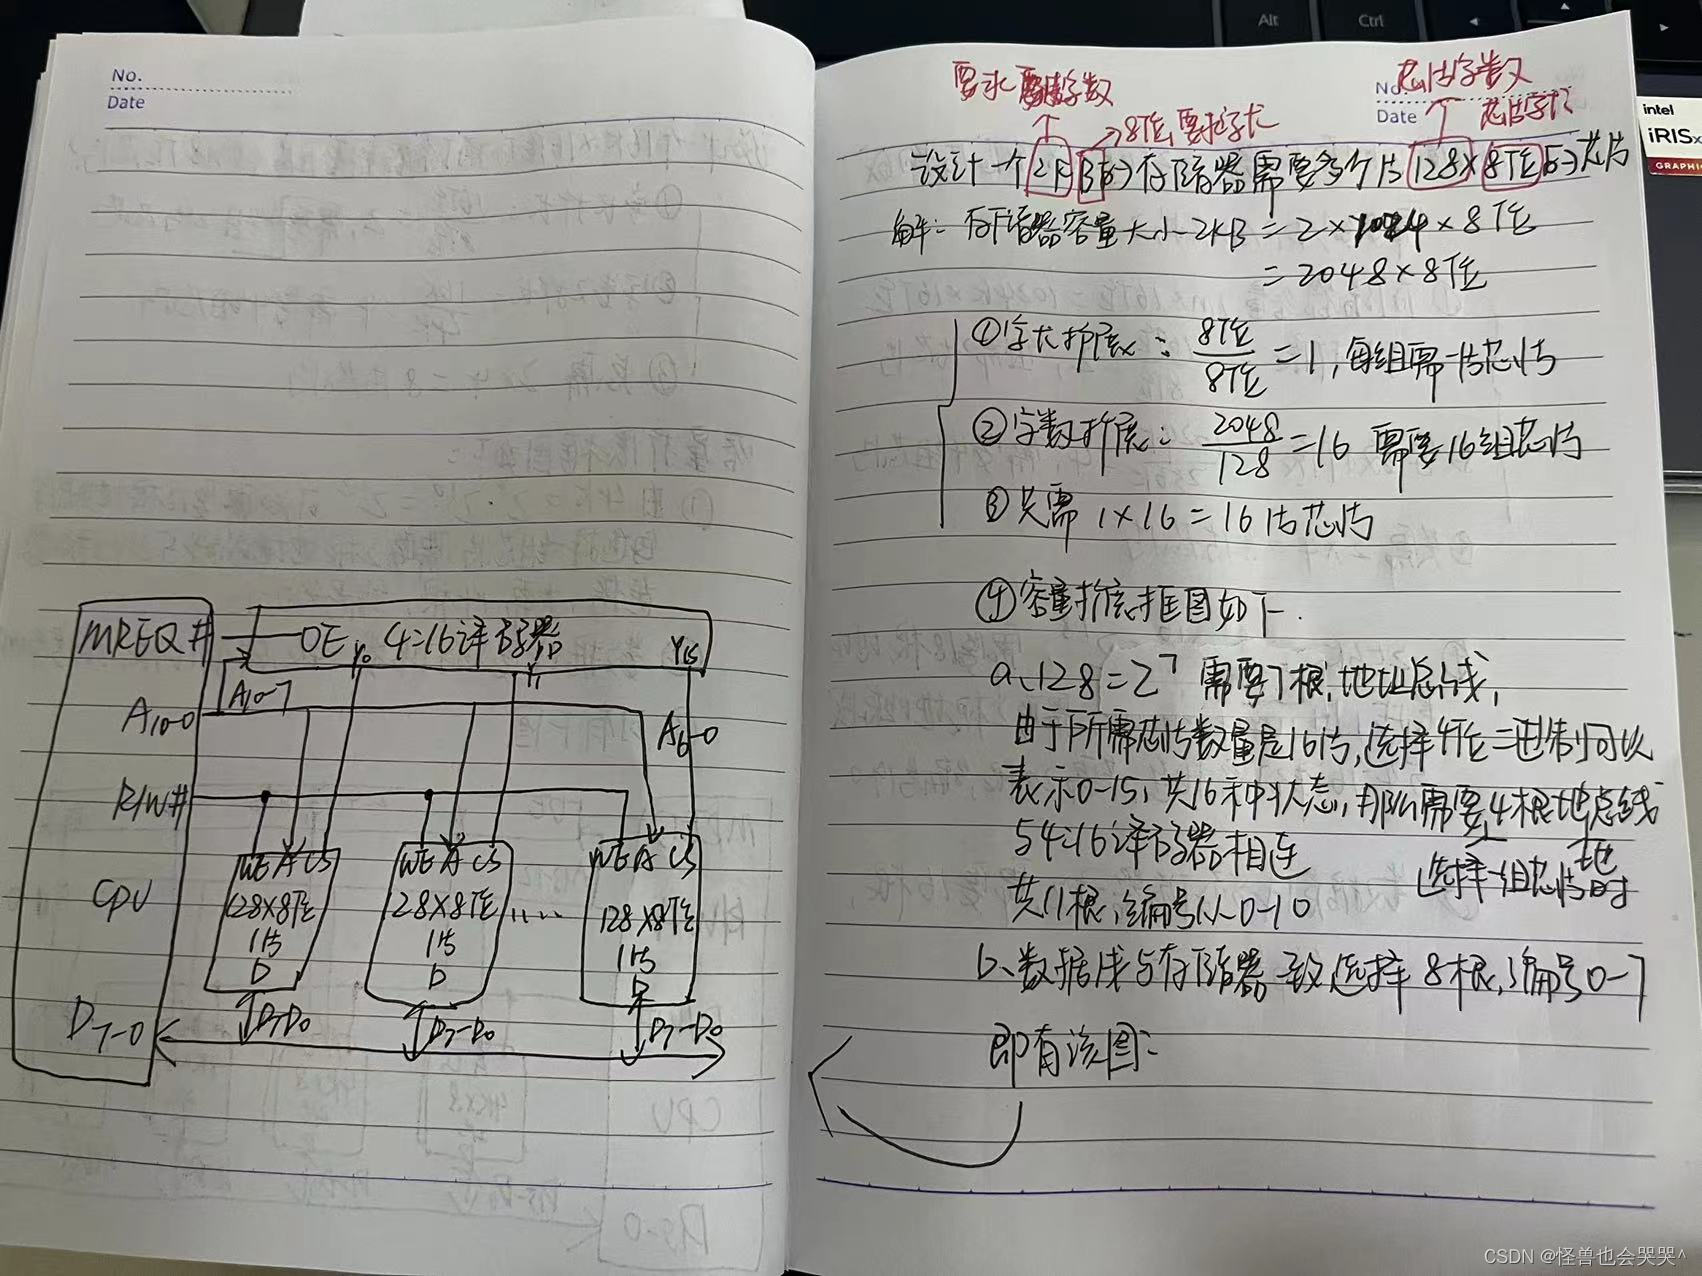 Alt
Ctrl
intel
iRISx
GRAPHIC
No.
Date
MREQ#
OE
Y0
4:16译码器
Y1
Y15
A10-7
A10-0
A6-0
R/W#
CPU
WE A CS
128×8位
1片
D
WE A CS
128×8位
1片
D
……
WE A CS
128×8位
1片
D
D7-D0
D7-D0
D7-D0
D7-0
No.
Date
要求
字数
8位,要求字长
芯片字数
芯片字长
设计一个2KB的存储器需要多个片128×8位的芯片
解:存储器容量大小2KB=2×1024×8位
=2048×8位
①字长扩展:8位/8位=1,每组需一片芯片
②字数扩展:2048/128=16 需要16组芯片
③共需1×16=16片芯片
④容量扩展框图如下.
a、128=2^7 需要7根地址总线,
由于所需芯片数量是16片,选择4位二进制可以
表示0-15,共16种状态,那么需要4根地址总线
与4:16译码器相连
选择一组芯片时
共11根,编号从0-10
b、数据线与存储器一致选择8根,编号0-7
即有该图:
CSDN @怪兽也会哭哭^